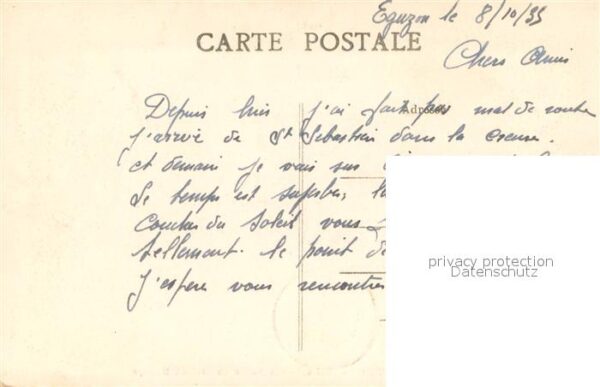 Eguzon le 8/10/35
CARTE POSTALE
Chers Amis
Depuis j'ai fait pas mal de route
Adresse
j'arrive de St Sebastien dans la creuse.
et demain je vais sur
Le temps est superbe, le
Couché du Soleil vous
tellement. le point de
J'espere vous rencontrer
privacy protection
Datenschutz